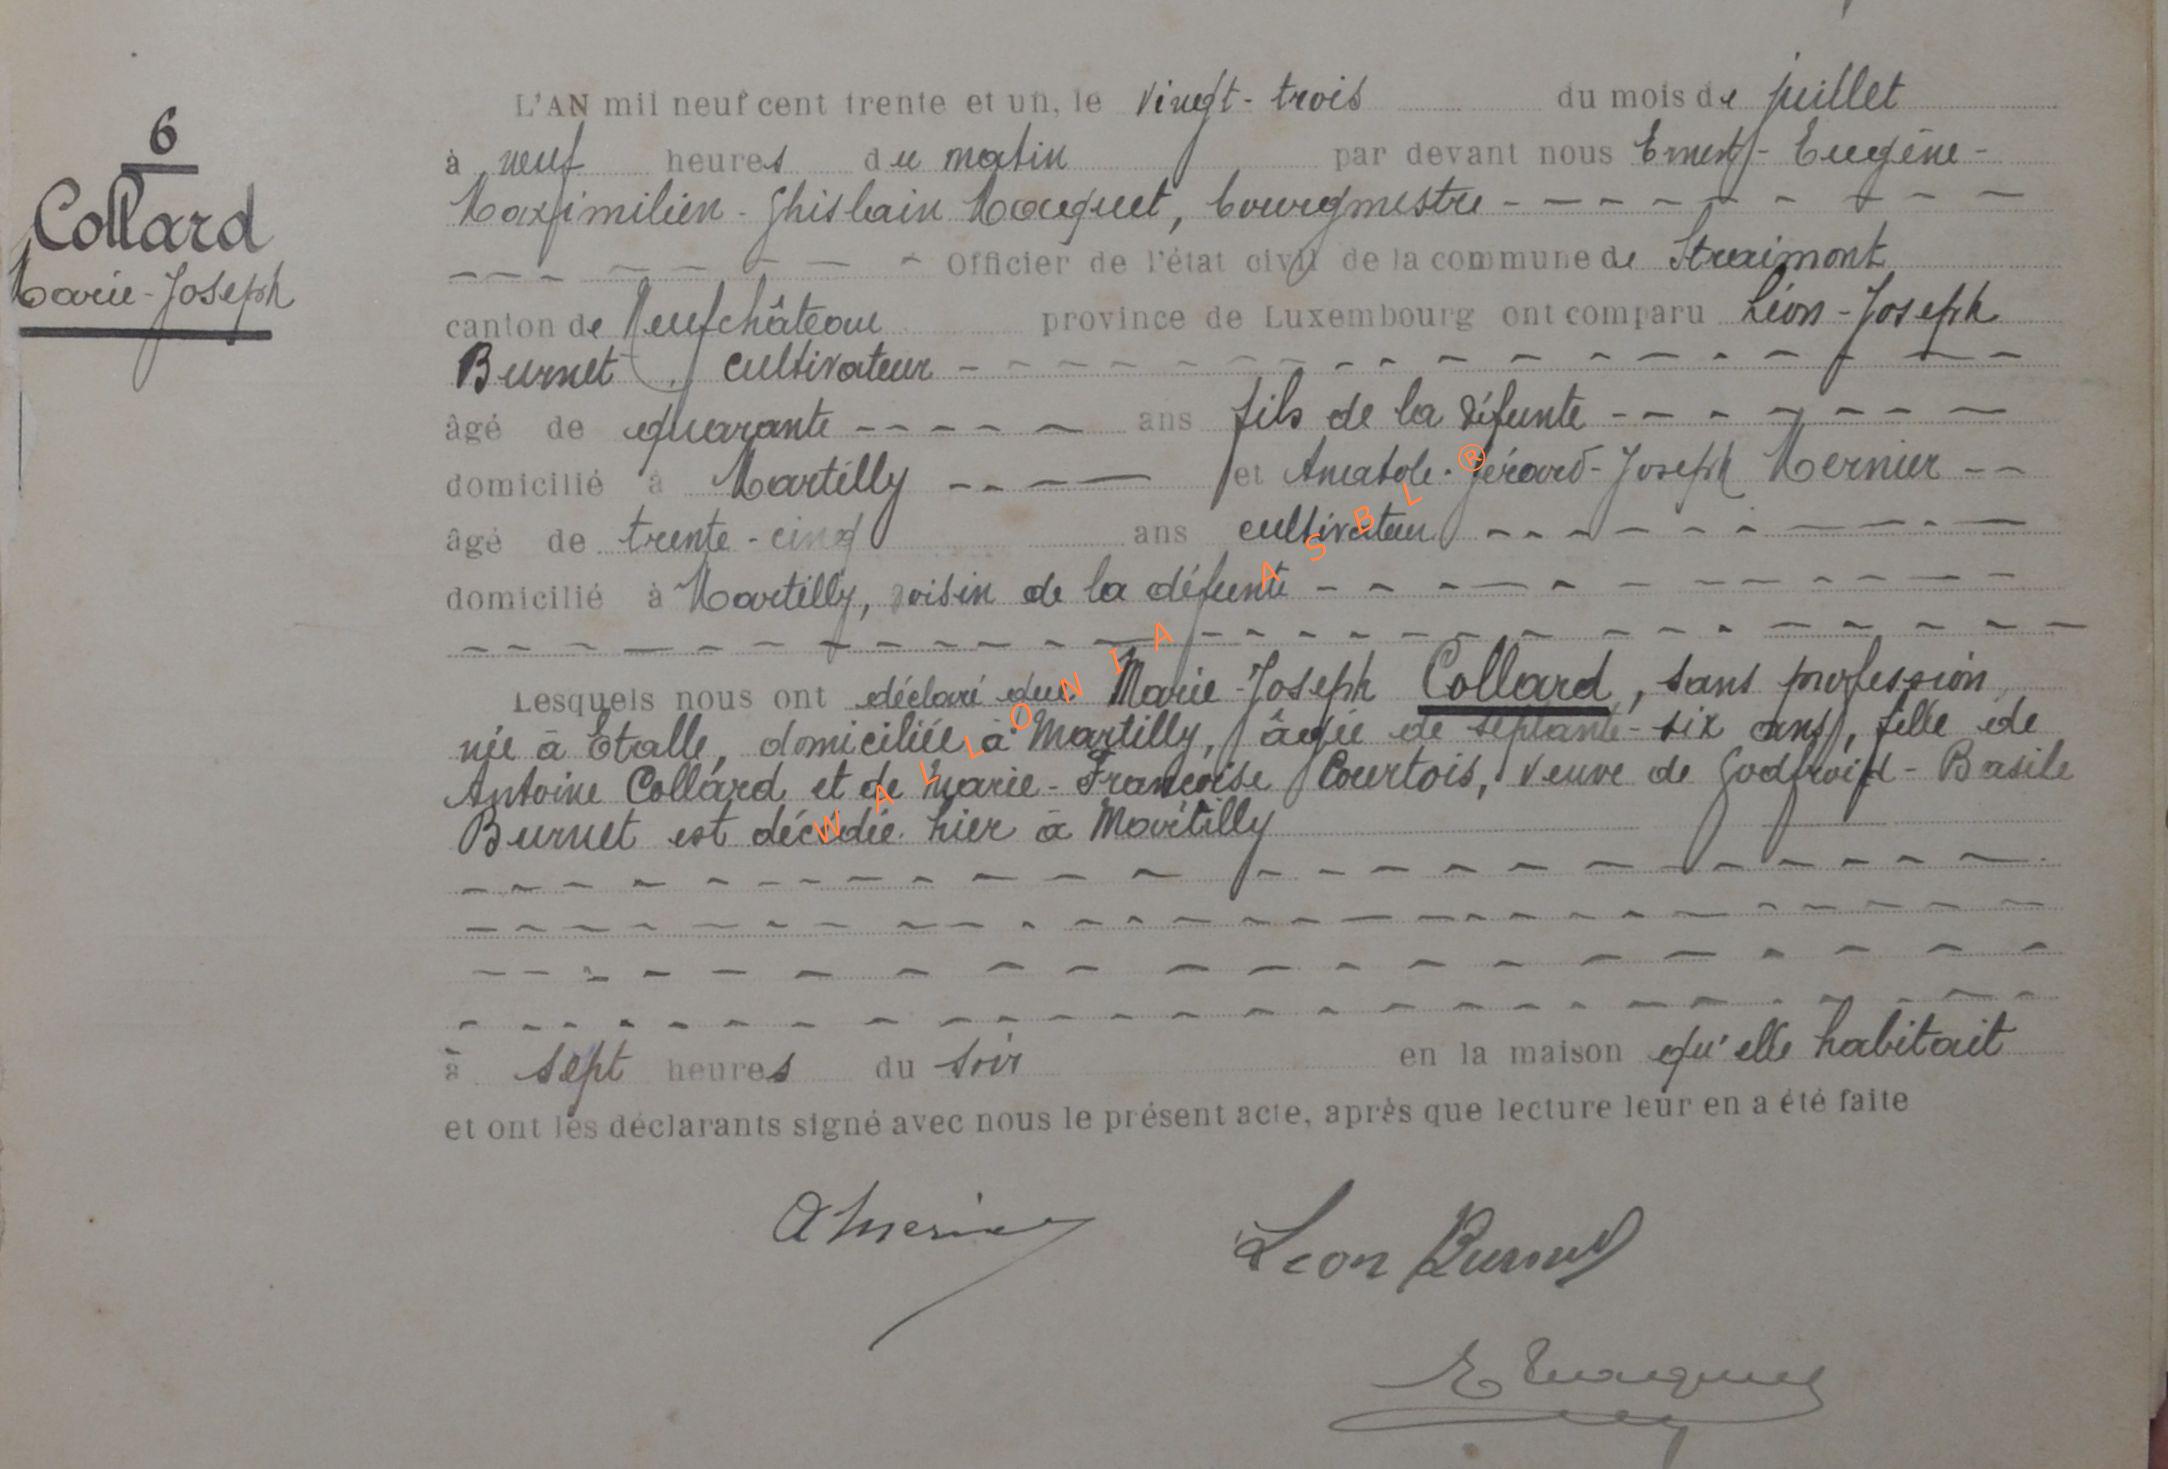 6
Collard
Marie-Joseph
L'AN mil neuf cent trente et un, le vingt-trois du mois de juillet
à neuf heures du matin par devant nous Ernest-Eugène-
Maximilien-Ghislain Macquet, bourgmestre
Officier de l'état civil de la commune de Straimont
canton de Neufchâteau province de Luxembourg ont comparu Léon-Joseph
Burnet, cultivateur
âgé de quarante ans fils de la défunte
domicilié à Martilly et Anatole-Gérard-Joseph Mernier
âgé de trente-cinq ans cultivateur
domicilié à Martilly, voisin de la défunte
Lesquels nous ont déclaré que Marie-Joseph Collard, sans profession
née à Etalle, domiciliée à Martilly, âgée de septante-six ans, fille de
Antoine Collard et de Marie-Françoise Courtois, veuve de Godfroid-Basile
Burnet est décédée hier à Martilly
à sept heures du soir en la maison qu'elle habitait
et ont les déclarants signé avec nous le présent acte, après que lecture leur en a été faite
Léon Burnet
WALLONIA ASBL ®